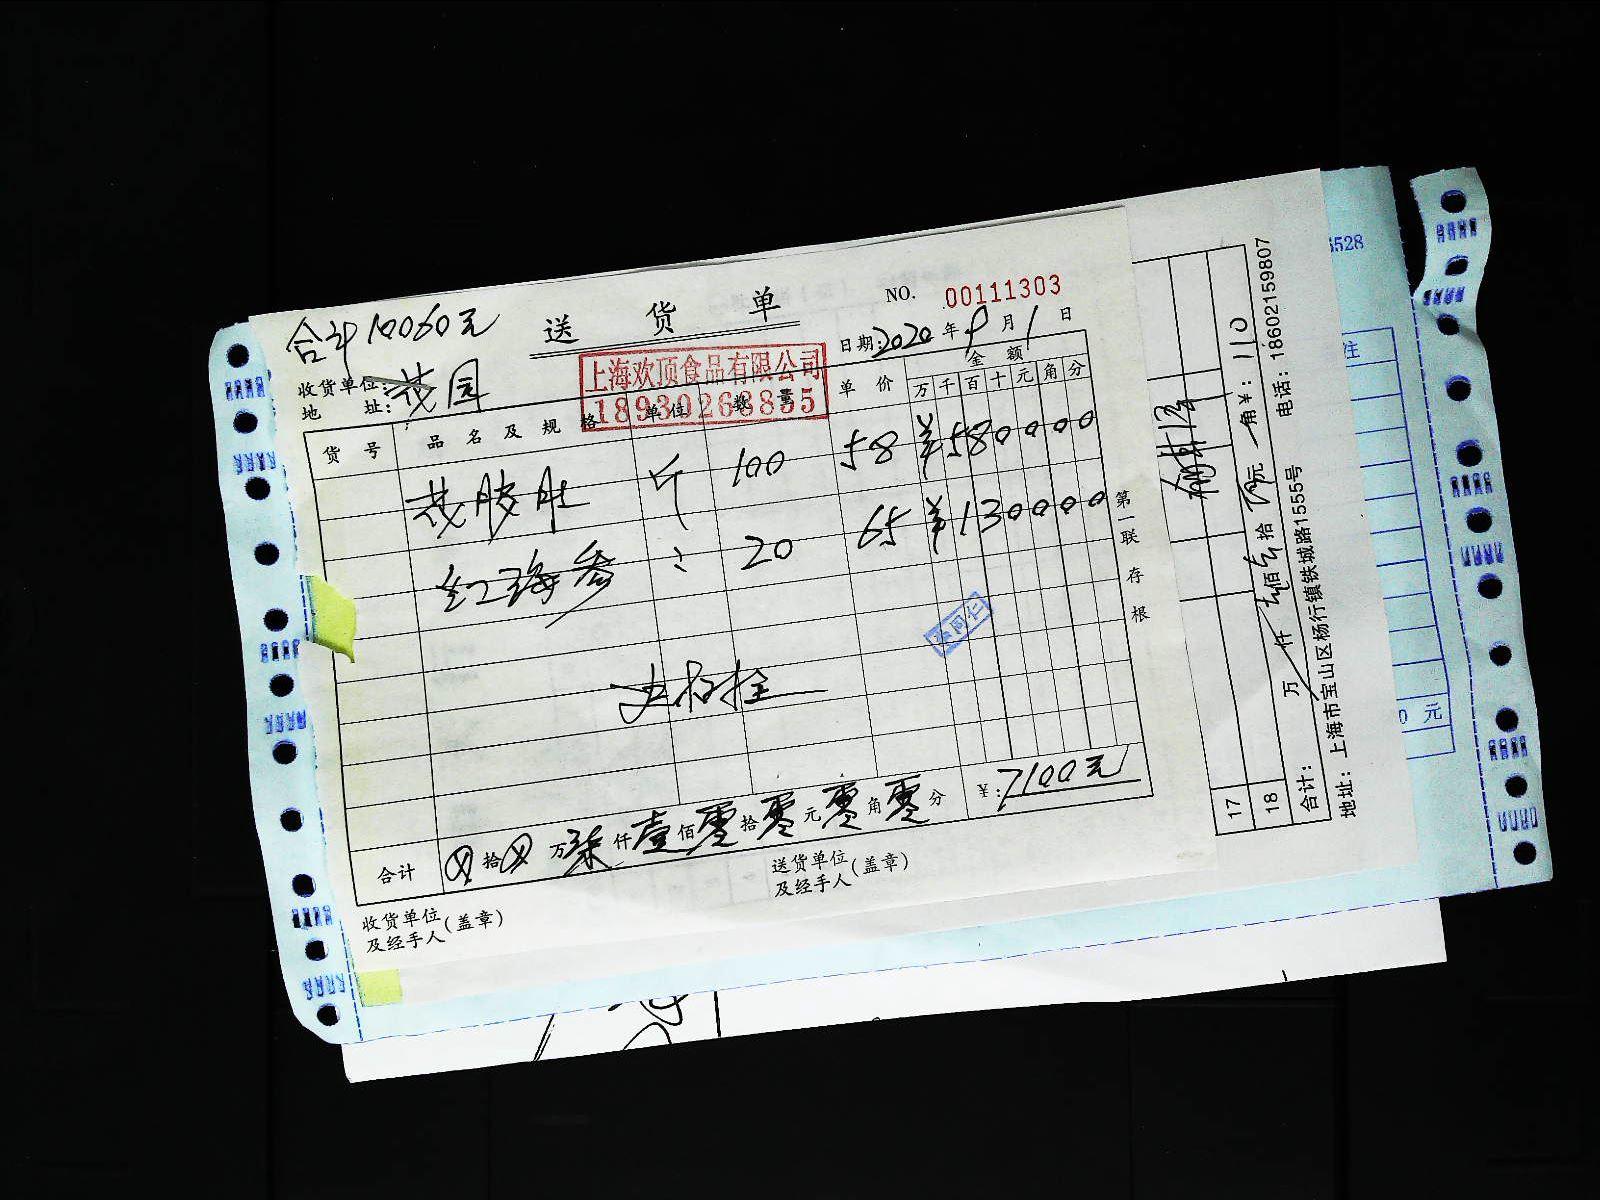 合计10060元
送 货 单
NO. 00111303
上海欢顶食品有限公司
18930268855
日期:2020年9月1日
收货单位:
地 址: 花园
货 号 品 名 及 规 格 单位 数 量 单 价 金 额
万 千 百 十 元 角 分
花胶肚 斤 100 58 ¥580000
红海参 〃 20 65 ¥130000
第一联 存根
合计 ⊗拾⊗万柒仟壹佰零拾零元零角零分 ¥:7100元
收货单位
及经手人(盖章)
送货单位
及经手人(盖章)
17
18
合计: 万 仟 壹佰壹拾 元 角¥: 110
地址: 上海市宝山区杨行镇铁城路1555号 电话: 18602159807
528
注
0 元